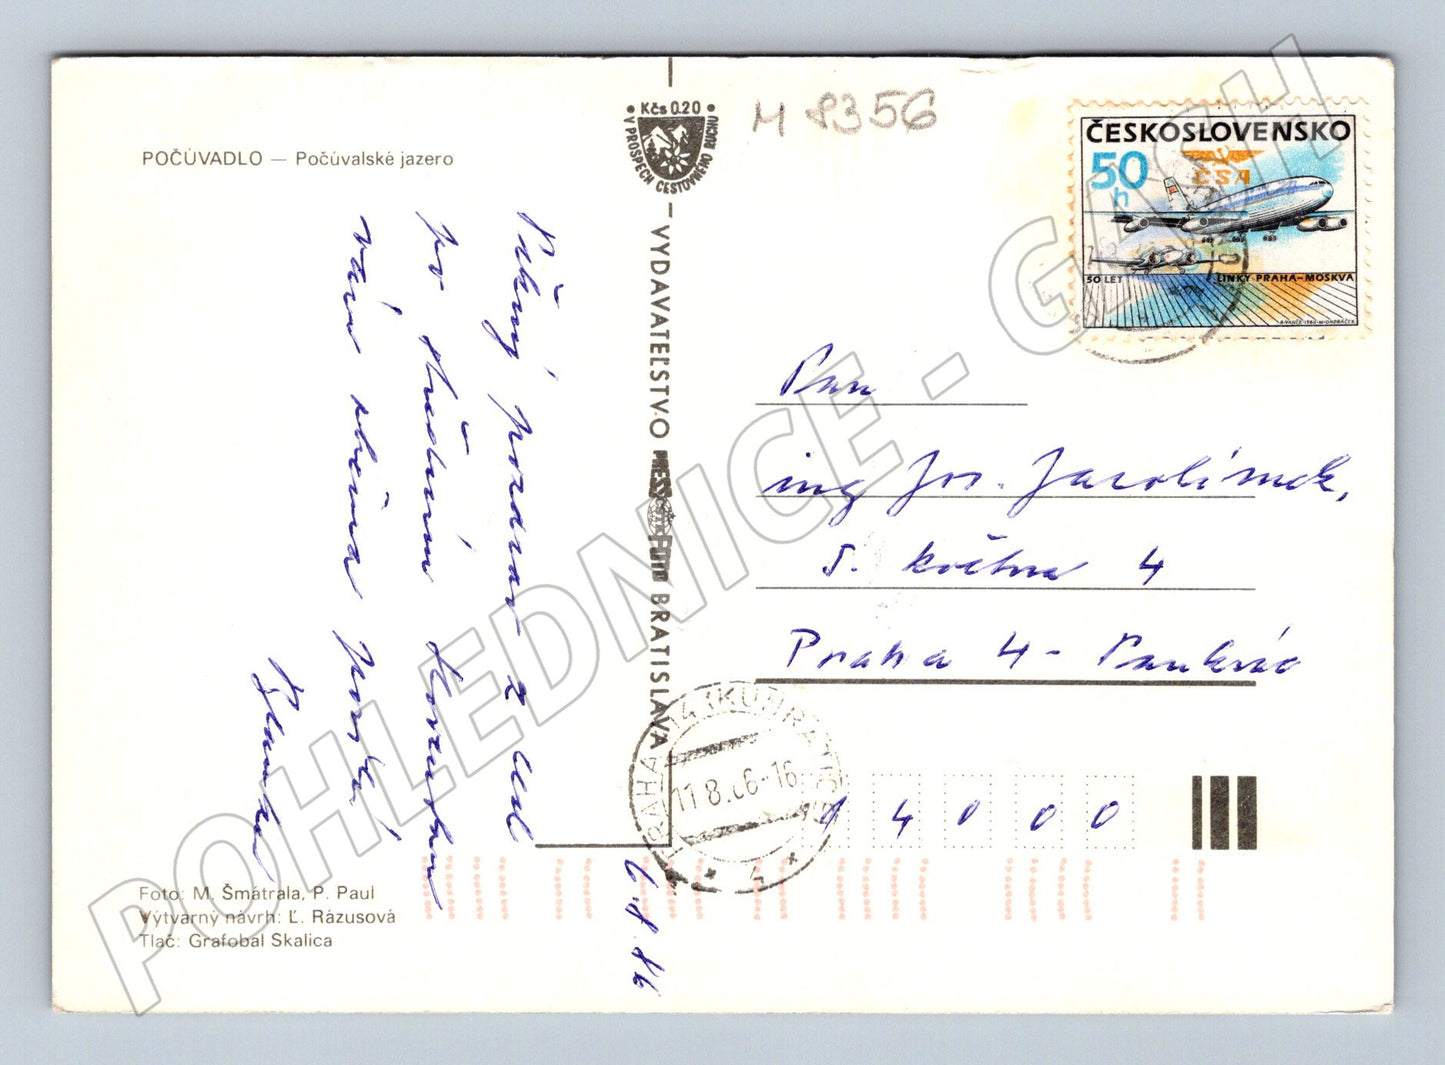 POČÚVADLO — Počúvalské jazero
Kčs 0.20
V PROSPECH CESTOVNÉHO RUCHU
M 8356
ČESKOSLOVENSKO
50 h
ČSA
50 LET LINKY PRAHA–MOSKVA
VYDAVATEĽSTVO PRESSFOTO BRATISLAVA
Pěkný pozdrav z cest
po středním Slovensku
vám všem posílá
6.8.86
Pan
ing Jos. Jarolímek,
5. května 4
Praha 4 - Pankrác
PRAHA 4
11.8.86-16
4
1 4 0 0 0
Foto: M. Šmátrala, P. Paul
Výtvarný návrh: Ľ. Rázusová
Tlač: Grafobal Skalica
POHLEDNICE - GASH